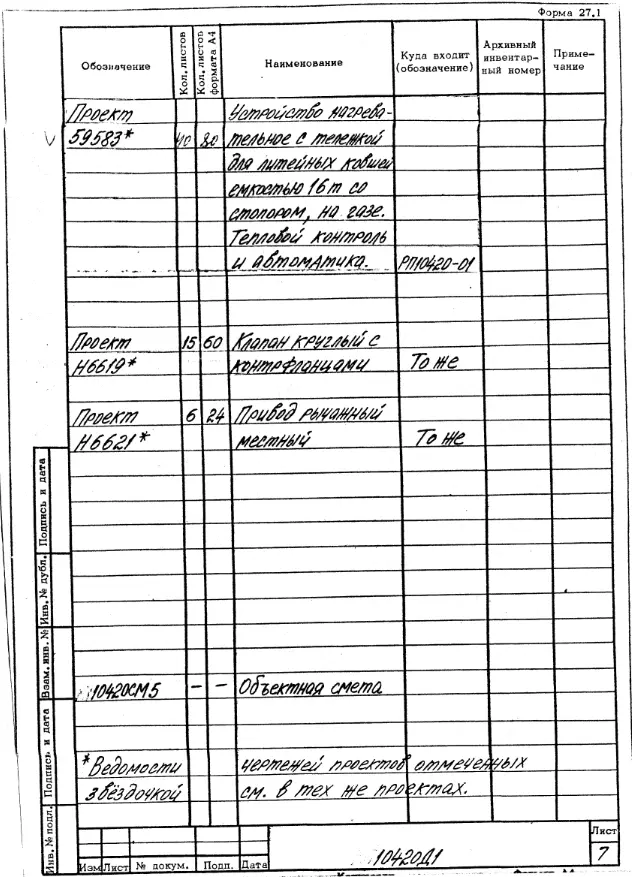 Форма 27.1
Обозначение
Кол. листов
Кол. листов формата А4
Наименование
Куда входит (обозначение)
Архивный инвентар- ный номер
Приме- чание
Проект Устройство нагрева-
59583* 40 80 тельное с тележкой
для литейных ковшей
емкостью 16т со
стопором, на газе.
Тепловой контроль
и автоматика. РП10420-01
Проект 15 60 Клапан круглый с
Н6619* контрфланцами То же
Проект 6 24 Привод рычажный
Н6621* местный То же
10420СМ5 – – Объектная смета
*Ведомости чертежей проектов отмеченных
звёздочкой см. в тех же проектах.
Подпись и дата
Инв. № дубл.
Взам. инв. №
Подпись и дата
Инв. № подл.
Изм Лист № докум. Подп. Дата
10420Д1
Лист
7